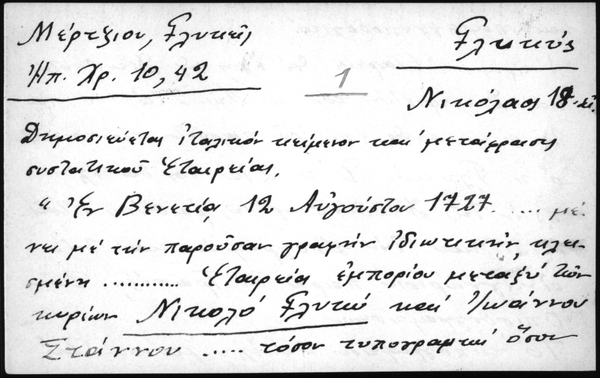 Μέρτζιου, Γλυκεῖς
Γλυκύς
Ἠπ. Χρ. 10, 42
1
Νικόλαος 18
Δημοσιεύεται ἰταλικόν κείμενον καί μετάφρασις
συστατικοῦ Ἑταιρείας.
"Ἐν Βενετίᾳ 12 Αὐγούστου 1727. .... μέ-
νει μέ τήν παροῦσαν γραφήν ἰδιωτικήν κλει-
σμένη ............ Ἑταιρεία ἐμπορίου μεταξύ τῶν
κυρίων Νικολό Γλυκύ καί Ἰωάννου
Στάννου ..... τόσον τυπογραφική ὅσον